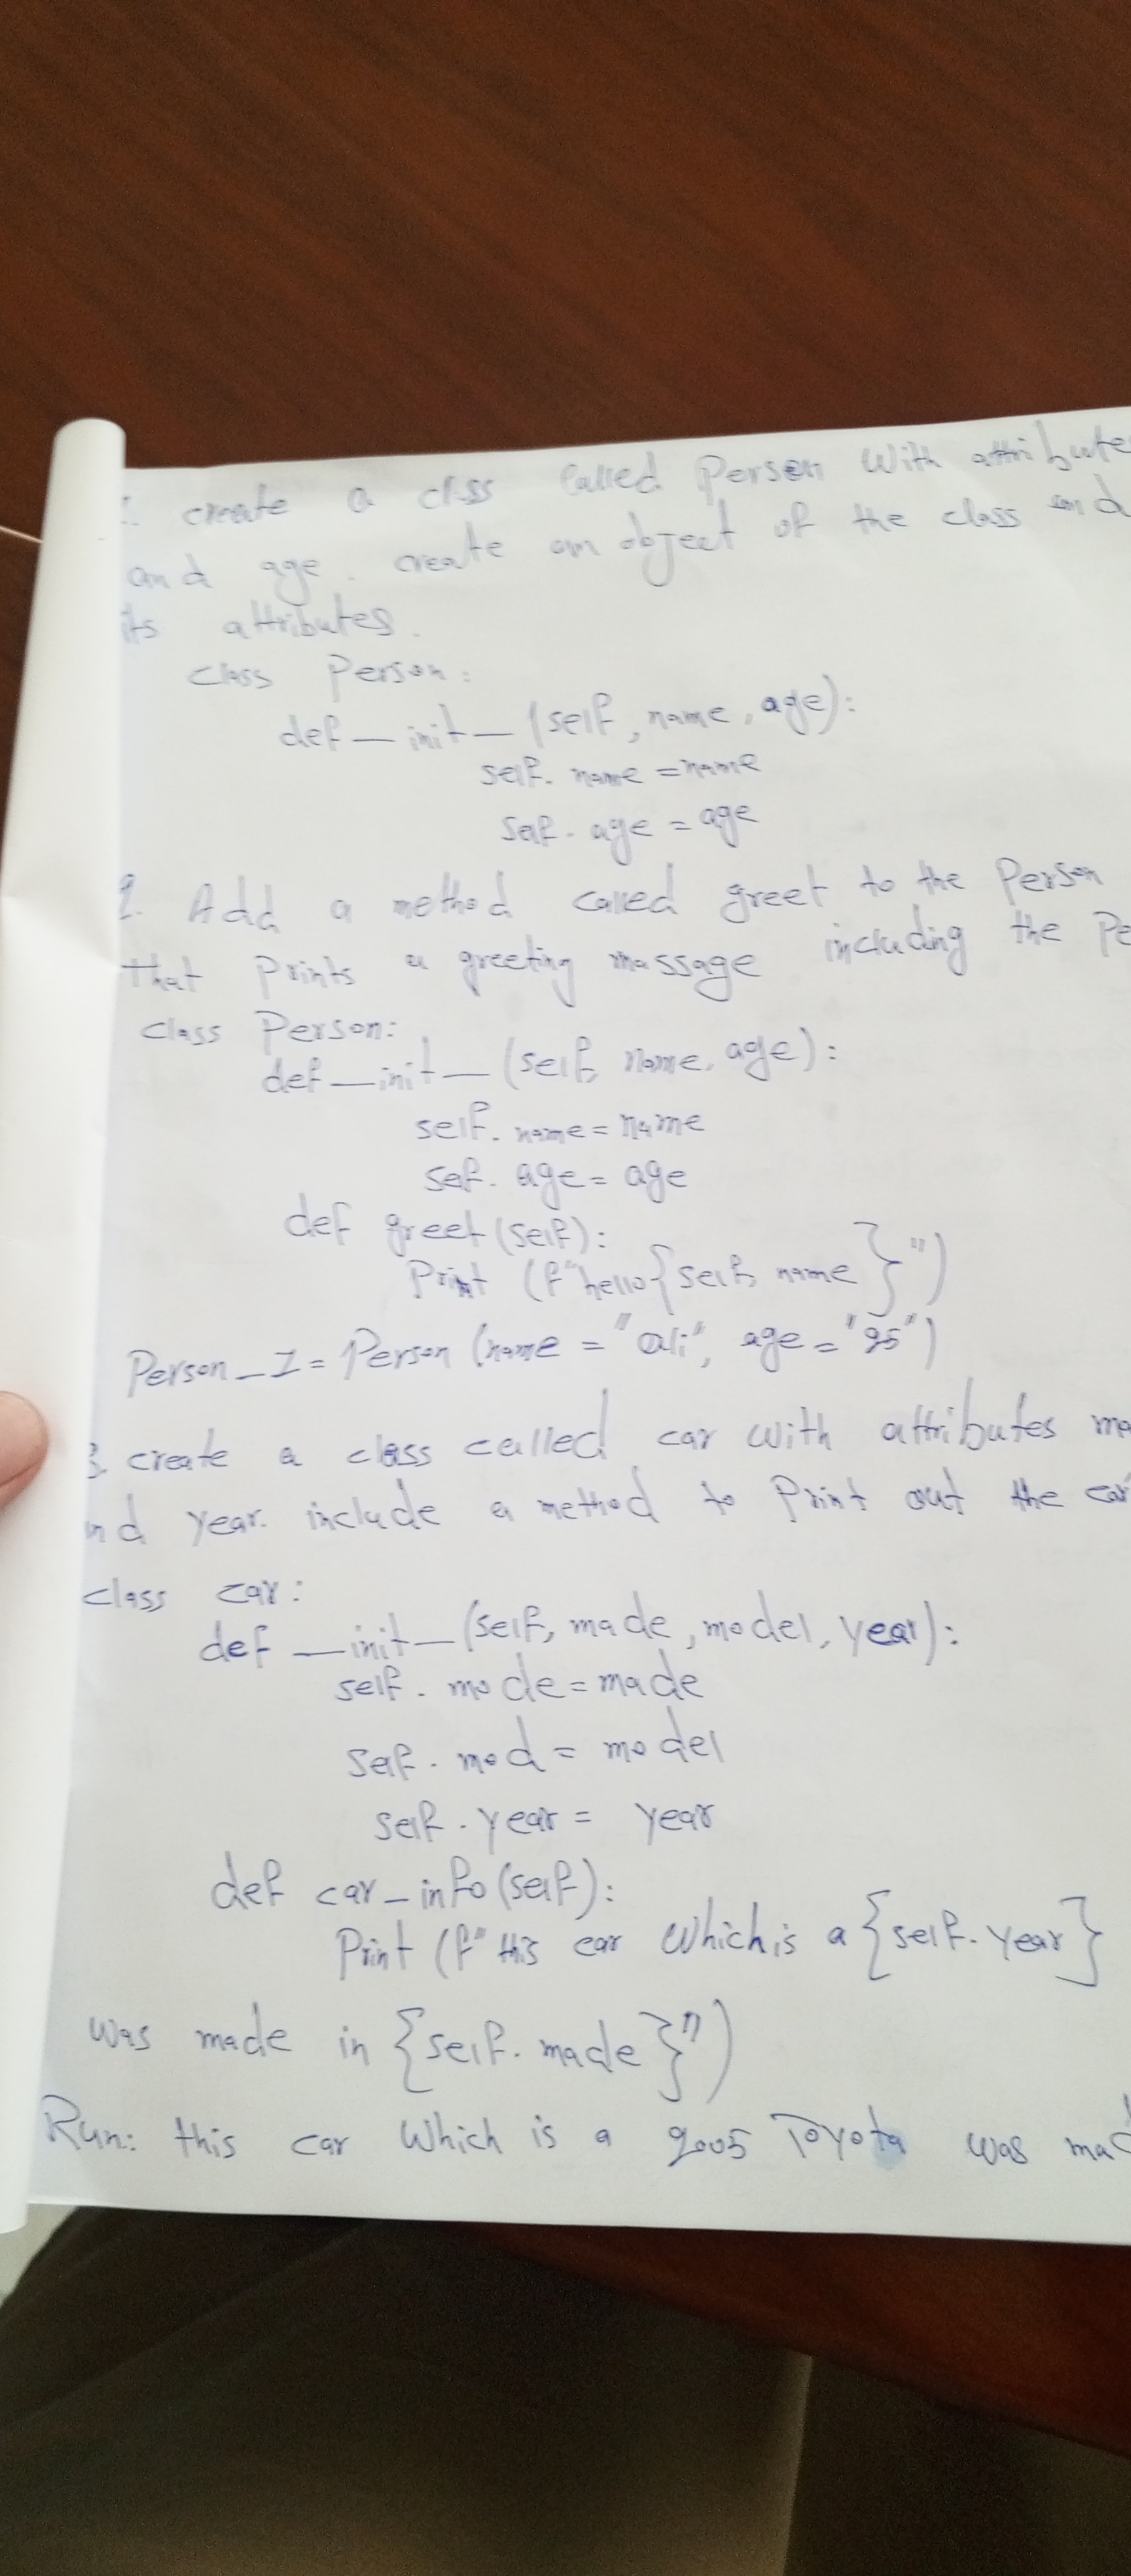 create a class called Person with attribute
and age. create an object of the class and
its attributes.
class Person:
def _ init _ (self, name, age):
self. name = name
self. age = age
2. Add a method called greet to the Person
that prints a greeting massage including the Pe
class Person:
def _ init _ (self, name, age):
self. name = name
self. age = age
def greet (self):
Print (f"hello {self, name }")
Person _ 1 = Person (name = "ali", age = "25")
3. create a class called car with attributes ma
nd year. include a method to Print out the car
class car:
def _ init _ (self, made, model, year):
self. made = made
self. mod = model
self. year = year
def car _ info (self):
Print (f" this car which is a {self. year}
was made in {self. made }")
Run: this car which is a 2005 Toyota was mad